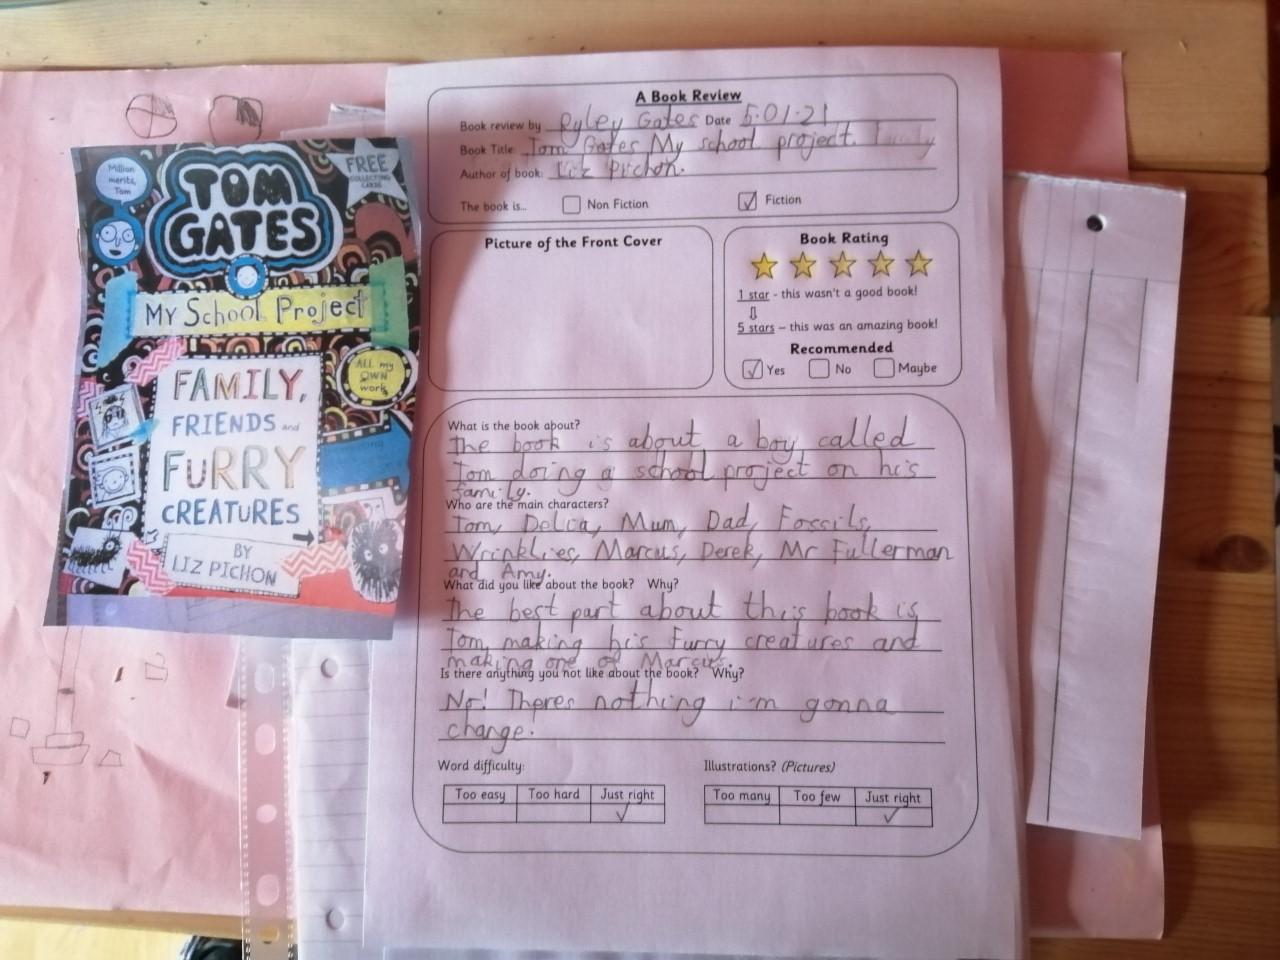 Million
merits,
Tom
FREE
COLLECTING
CARDS
TOM
GATES
MY SCHOOL PROJECT
ALL my
OWN
work
FAMILY,
FRIENDS and
FURRY
CREATURES
BY
LIZ PICHON
A Book Review
Book review by Ryley Gates Date 5.01.21
Book Title: Tom Gates My school project.
Author of book: Liz Pichon.
The book is... Non Fiction ✓ Fiction
Picture of the Front Cover
Book Rating
1 star - this wasn't a good book!
⇩
5 stars – this was an amazing book!
Recommended
✓ Yes No Maybe
What is the book about?
The book is about a boy called
Tom doing a school project on his
family.
Who are the main characters?
Tom, Delia, Mum, Dad, Fossils,
Wrinklies, Marcus, Derek, Mr Fullerman
and Amy.
What did you like about the book? Why?
The best part about this book is
Tom making his Furry creatures and
making one of Marcus.
Is there anything you not like about the book? Why?
No! Theres nothing i'm gonna
change.
Word difficulty:
Too easy Too hard Just right
✓
Illustrations? (Pictures)
Too many Too few Just right
✓